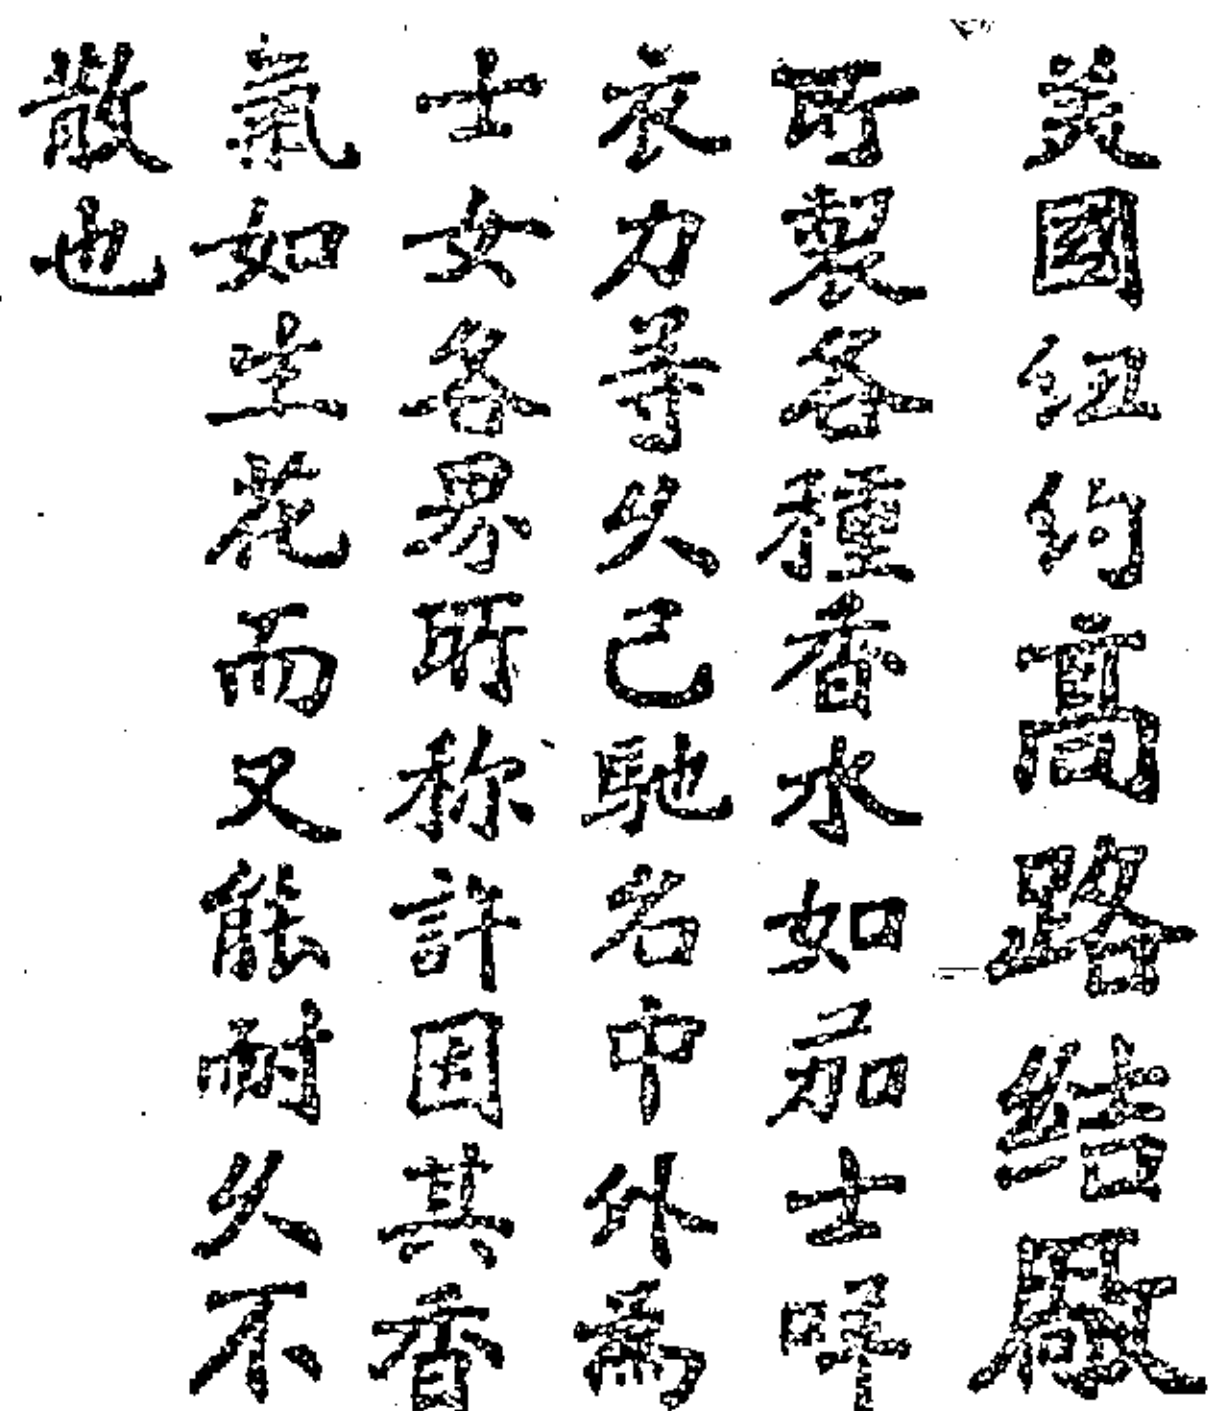 美國纽约高路结廠
所製各種香水如茄士咩
衣力等久已馳名中外為
士女各界所称許因其香
氣如生花而又能耐久不
散也